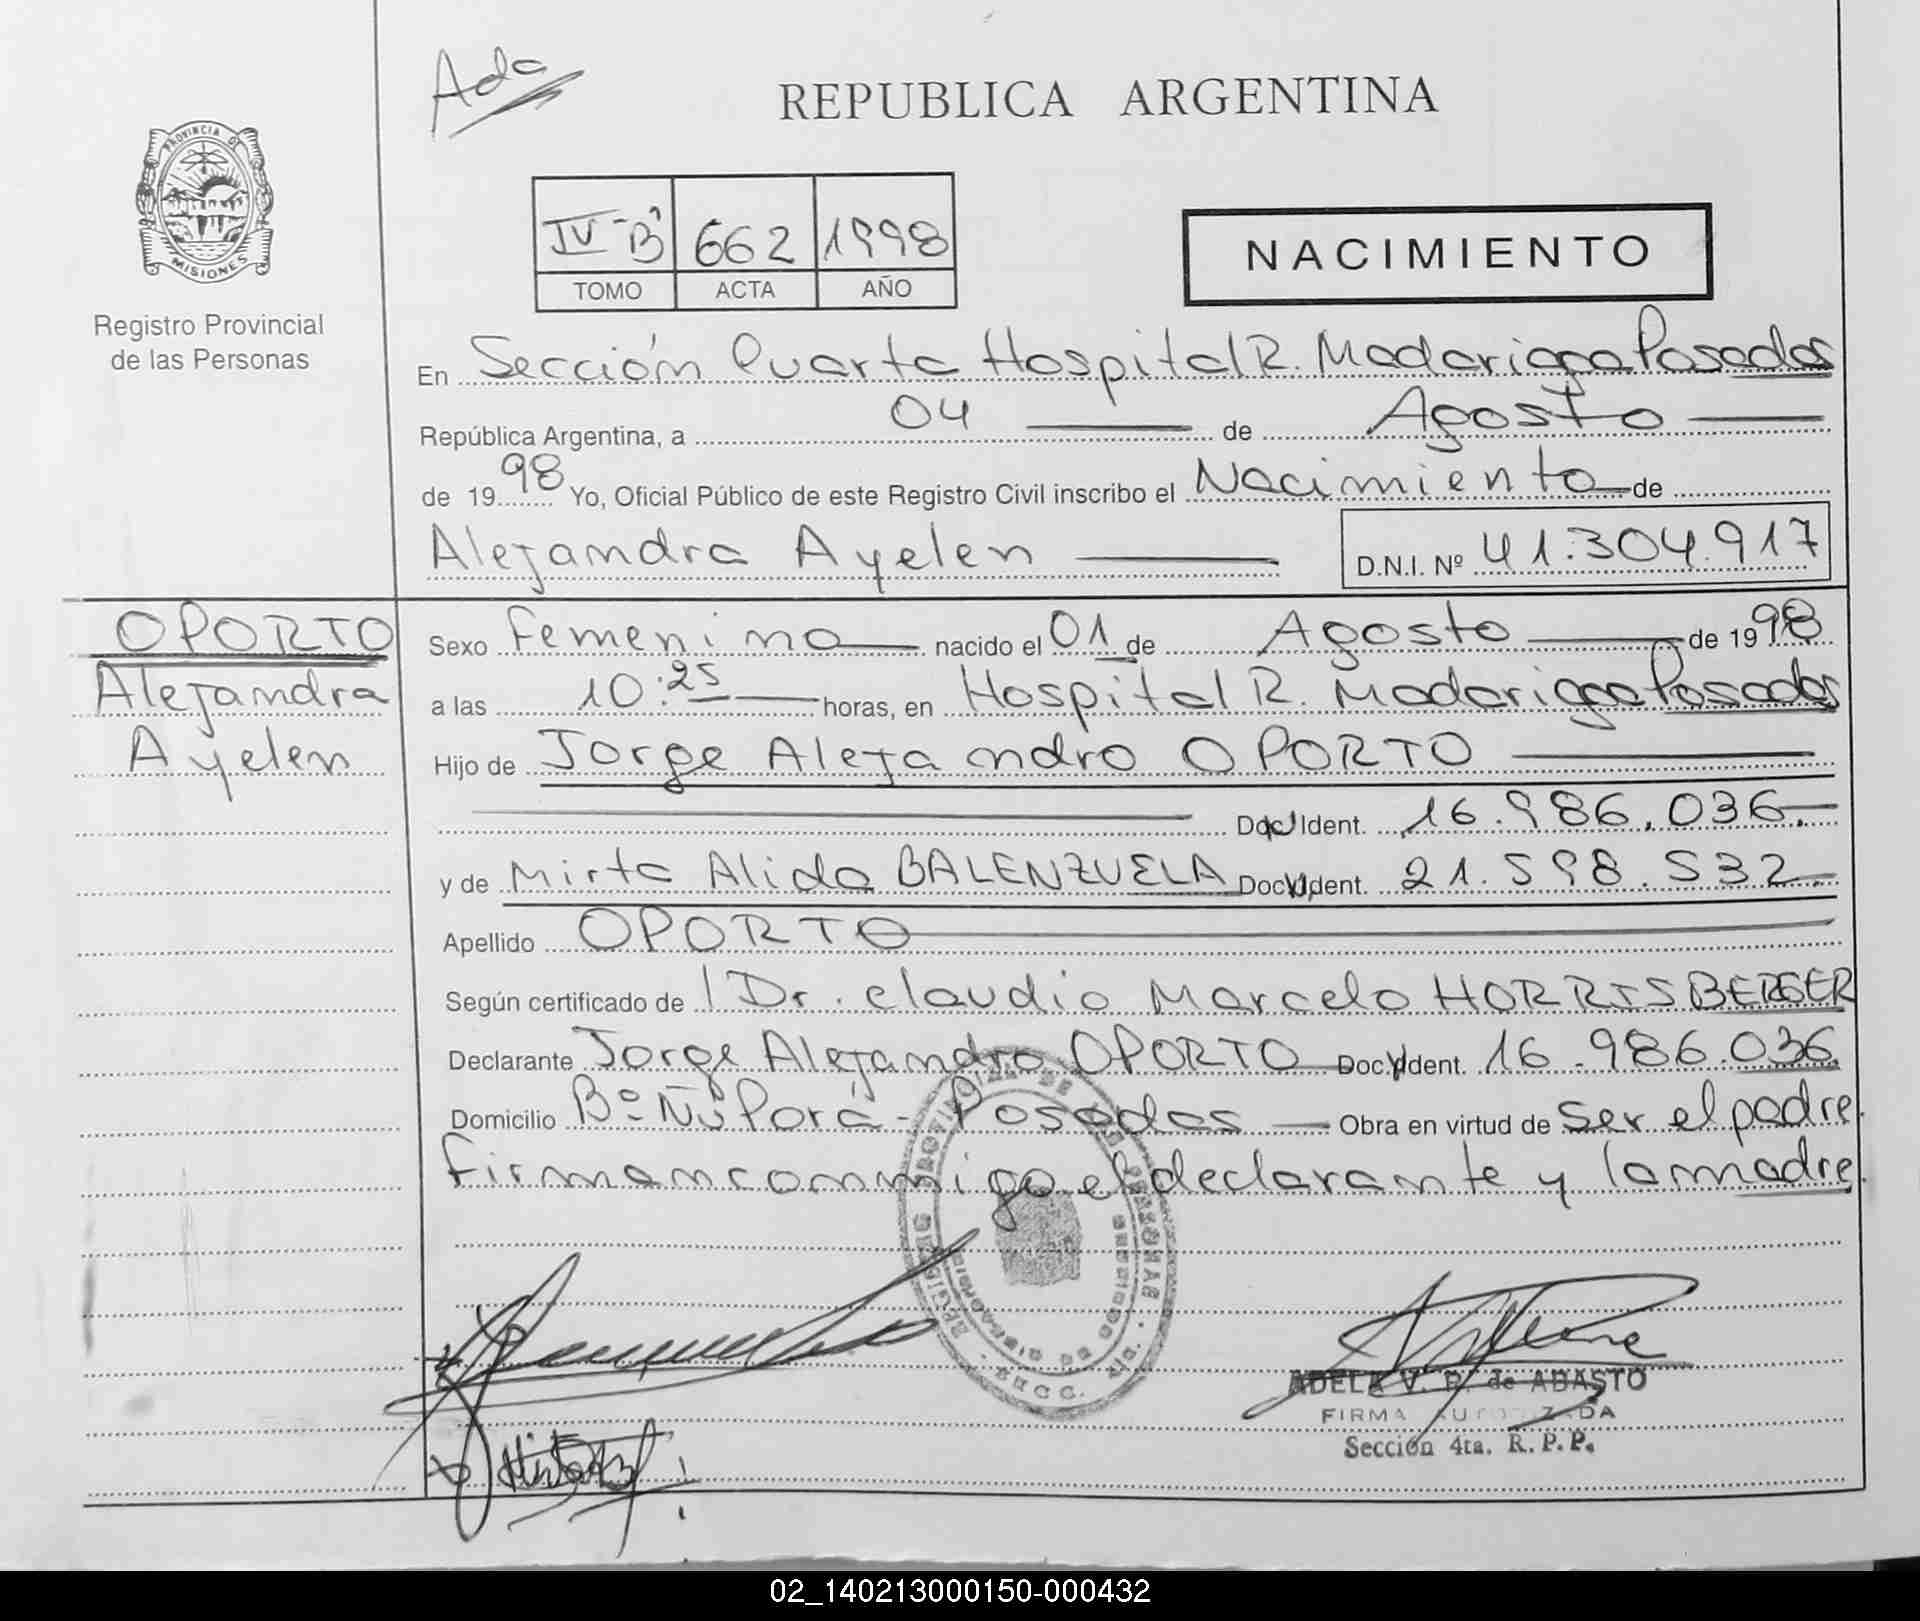 Ada
REPUBLICA ARGENTINA
PROVINCIA DE
MISIONES
Registro Provincial
de las Personas
IV "B" 662 1998
TOMO ACTA AÑO
NACIMIENTO
En Sección Cuarta Hospital R. Madariaga Posadas
República Argentina, a 04 de Agosto
de 1998 Yo, Oficial Público de este Registro Civil inscribo el Nacimiento de
Alejandra Ayelen D.N.I. Nº 41.304.917
OPORTO
Alejandra
Ayelen
Sexo femenino nacido el 01 de Agosto de 1998
a las 10:25 horas, en Hospital R. Madariaga Posadas
Hijo de Jorge Alejandro OPORTO
Doc. Ident. 16.986.036.
y de Mirta Alida BALENZUELA Doc. Ident. 21.598.532.
Apellido OPORTO
Según certificado de Dr. Claudio Marcelo HORRISBERGER
Declarante Jorge Alejandro OPORTO Doc. Ident. 16.986.036.
Domicilio Bº Ñu Porá - Posadas Obra en virtud de ser el padre.
Firman conmigo el declarante y la madre.
ADELA V. P. de ABASTO
FIRMA AUTORIZADA
Sección 4ta. R. P. P.
02_140213000150-000432